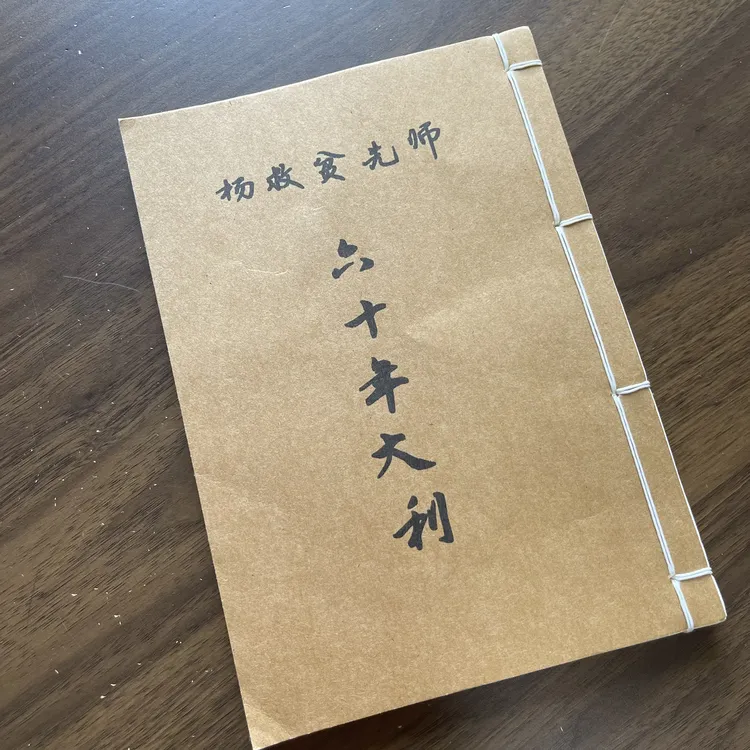 杨救贫先师
六十年大利